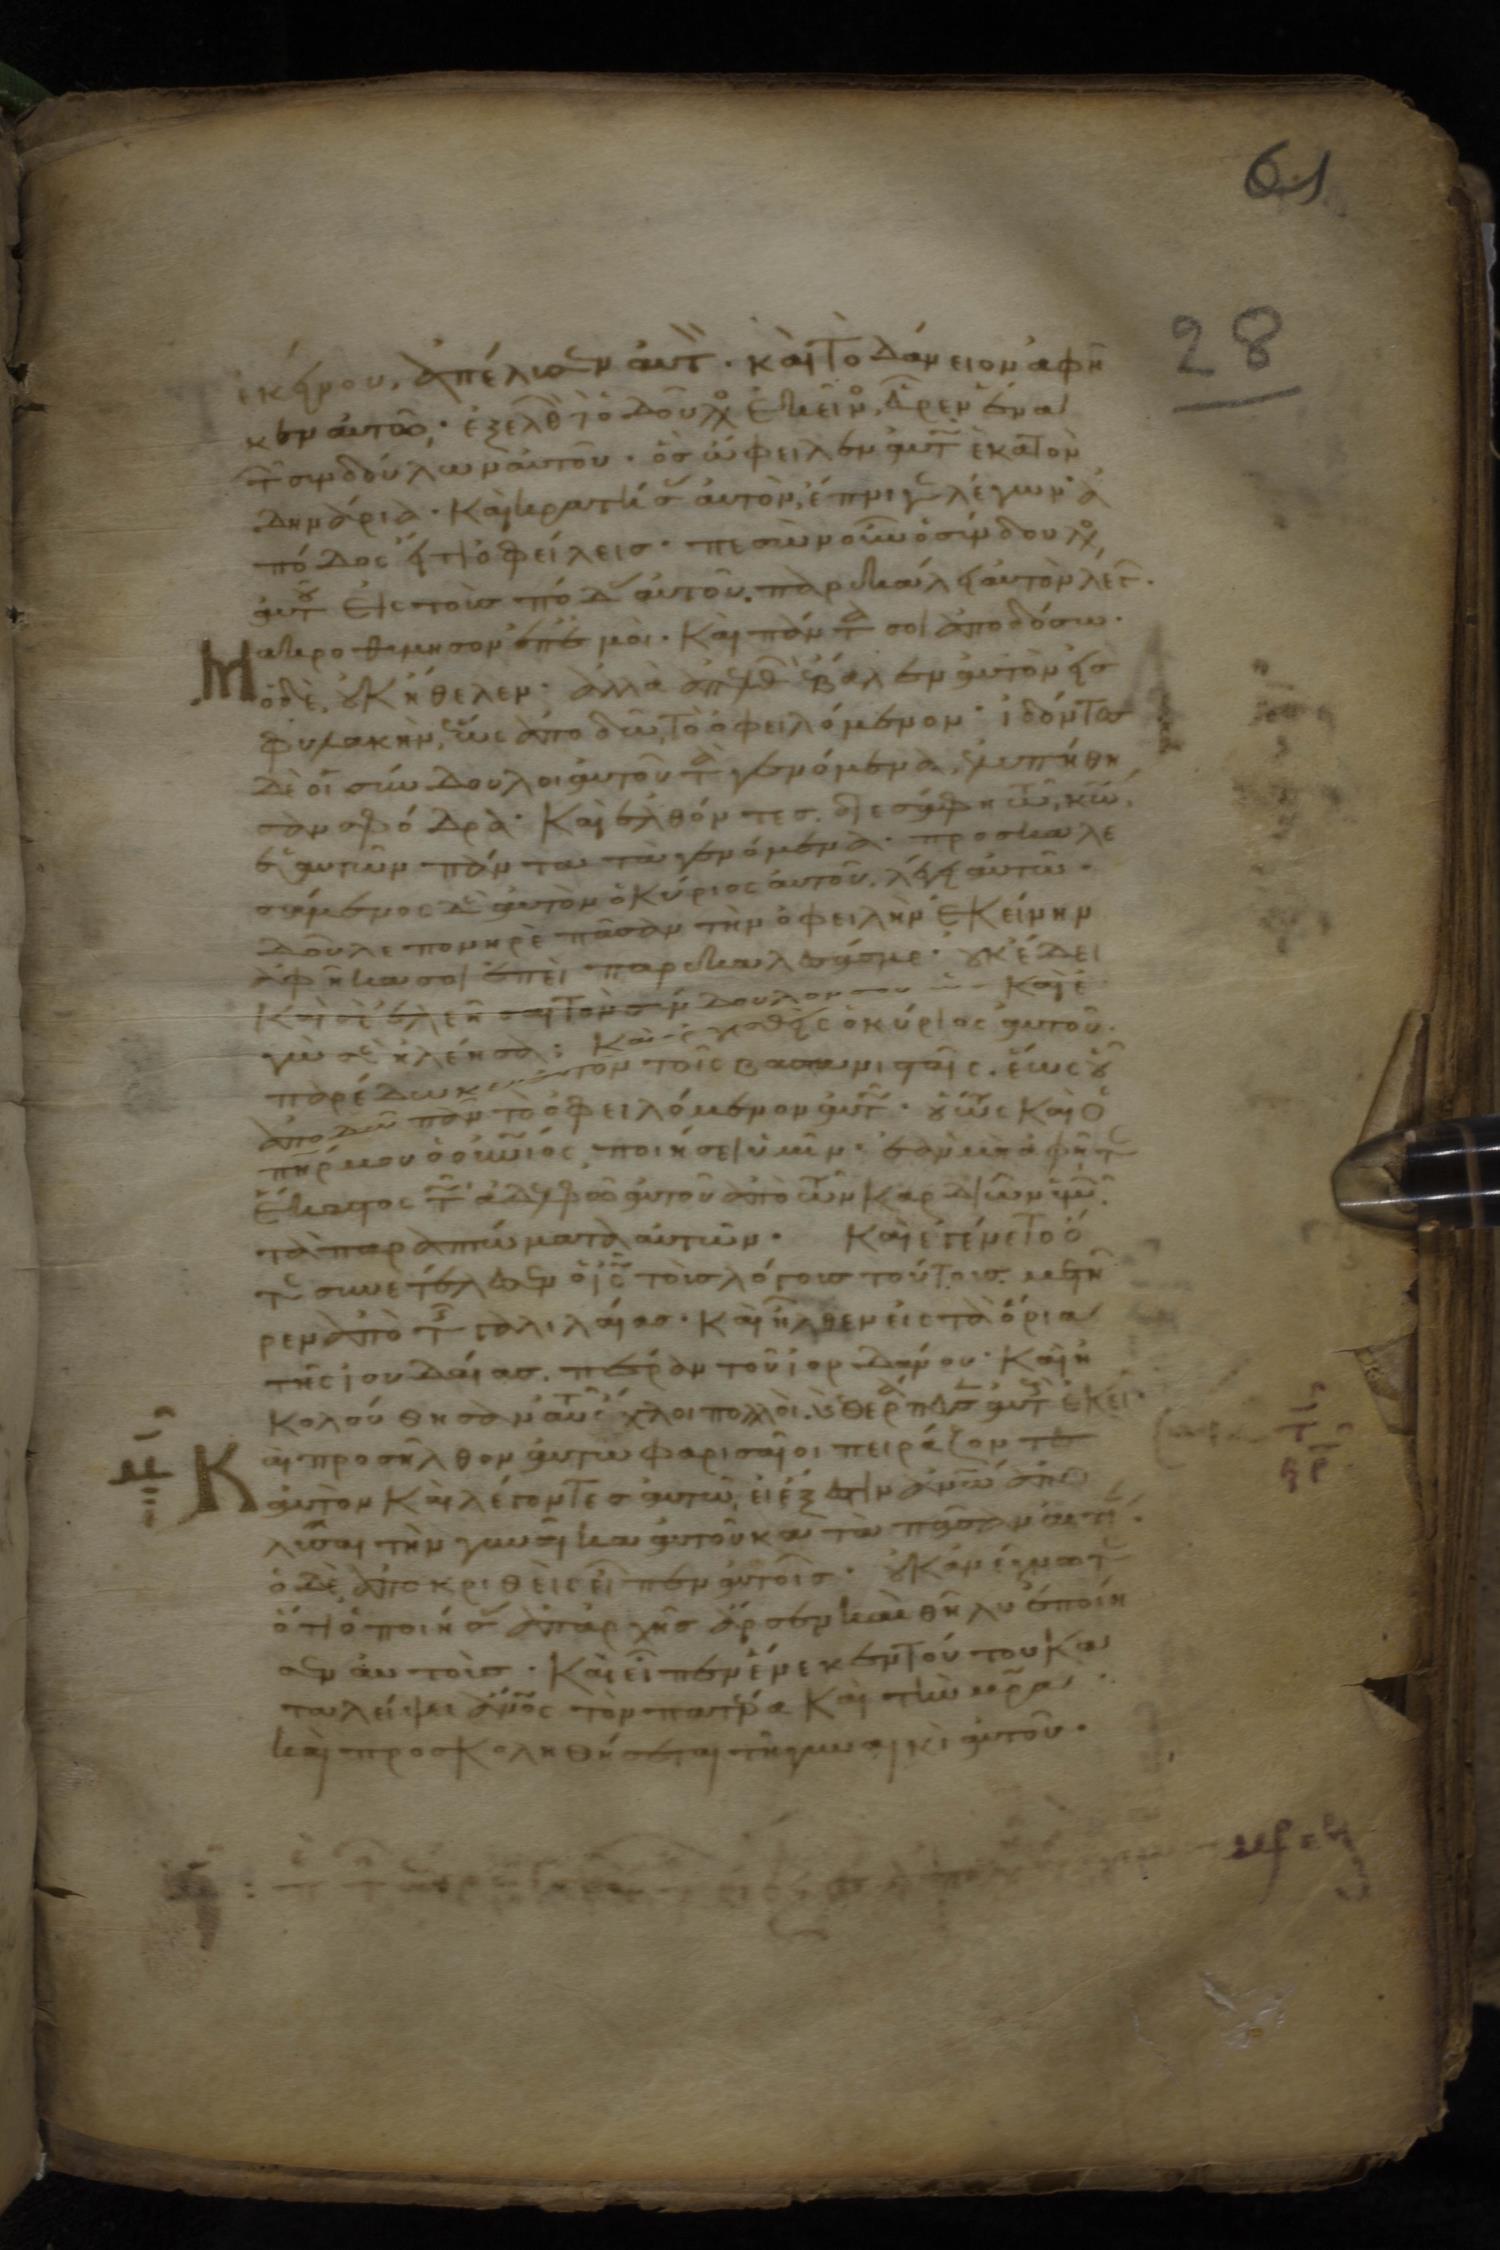 61
28
ἐκείνου, ἀπέλυσεν αὐτ · καὶ τὸ δάνειον ἀφῆ
κεν αὐτῶ · ἐξελθ δὲ ὁ δοῦλο ἐκεῖν, εὗρεν ἕνα
τ συνδούλων αὐτοῦ · ὃσ ὤφειλεν αὐτ ἑκατὸν
δηνάρια · καὶ κρατήσ αὐτὸν, ἔπνιγε λέγων · ἀ
πόδος εἴ τι ὀφείλεισ · πεσὼν οὖν ὁ σύνδουλο
αὐτ εἰς τοὺσ πόδ αὐτοῦ. παρεκάλει αὐτὸν λέγ ·
Μακροθύμησον ἐπ ἐμοὶ · καὶ πάντ σοι ἀποδόσω ·
ὁ δὲ, οὐκ ἤθελεν · ἀλλὰ ἀπελθ ἔβαλεν αὐτὸν εἰσ
φυλακὴν, ἕως ἀποδῶ, τὸ ὀφειλόμενον · ἰδόντεσ
δὲ οἱ σύνδουλοι αὐτοῦ τ γενόμενα, ἐλυπήθη
σαν σφόδρα · καὶ ἐλθόντεσ. διεσάφη τῶ κῶ
ἑαυτῶν πάντα τὰ γενόμενα · προσκαλε
σάμενος δὲ αὐτὸν ὁ κύριος αὐτοῦ, λέγει αὐτῶ ·
δοῦλε πονηρὲ πᾶσαν τὴν ὀφειλὴν ἐκείνην
ἀφῆκα σοι ἐπεὶ παρεκάλεσάς με · οὐκ ἔδει
καὶ σὲ ἐλεῆσαι τὸν σύνδουλον σου ὡς καὶ ἐ
γὼ σὲ ἠλέησα; καὶ ὀργισθεὶς ὁ κύριος αὐτοῦ ·
παρέδωκεν αὐτὸν τοῖς βασανισταῖς. ἕως οὗ
ἀποδῶ πᾶν τὸ ὀφειλόμενον αὐτ · οὕτως καὶ ὁ
πῆρ μου ὁ οὐνιος, ποιήσει ὑμῖν · ἐὰν μὴ ἀφῆτε
ἕκαστος τ ἀδελφῶ αὐτοῦ ἀπὸ τῶν καρδιῶν ὑμῶ
τὰ παραπτώματα αὐτῶν · καὶ ἐγένετο ὅ
τε συνετέλεσεν ὁ ις τοὺσ λόγουσ τούτουσ. μετῆ
ρεν ἀπὸ τ γαλιλαίασ · καὶ ἦλθεν εἰς τὰ ὅρια
τῆς ἰουδαίασ. πέραν τοῦ ἰορδάνου · καὶ ἠ
κολούθησαν αὐτ ὄχλοι πολλοὶ, ἐθεράπευσ αὐτ ἐκεῖ ·
Καὶ προσῆλθον αὐτῶ φαρισαῖοι πειράζοντε
αὐτὸν καὶ λέγοντεσ αὐτῶ, εἰ ἔξεστιν ἀνῶ ἀπο
λῦσαι τὴν γυναῖκα αὐτοῦ κατὰ πᾶσαν αἰτί ·
ὁ δὲ ἀποκριθεὶς εἶπεν αὐτοῖσ · οὐκ ἀνέγνωτε
ὅτι ὁ ποιήσ ἀπ ἀρχῆσ ἄρσεν καὶ θῆλυ ἐποίη
σεν αὐτοὺσ · καὶ εἶπεν ἕνεκεν τούτου κα
ταλείψει ἄνος τὸν πατέρα καὶ τὴν μρα
καὶ προσκοληθήσεται τῆ γυναικὶ αὐτοῦ ·